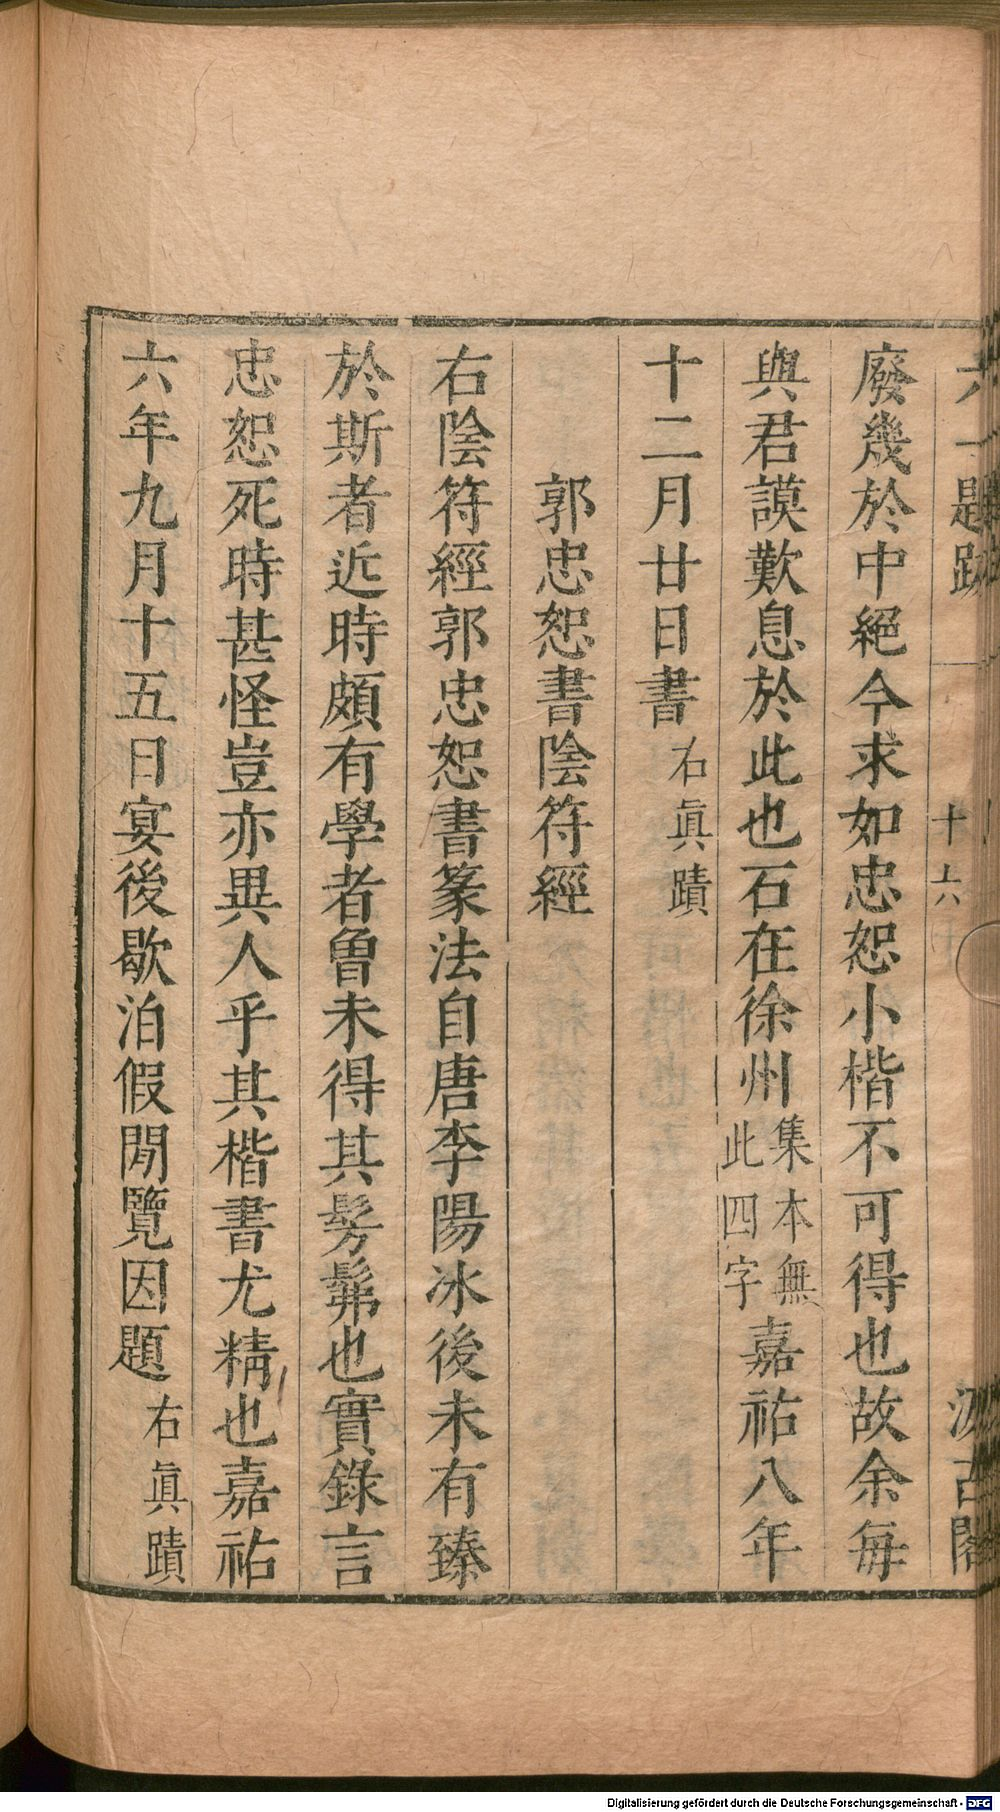 六一題跋 十六 汲古閣
廢幾於中絕今求如忠恕小楷不可得也故余每
與君謨歎息於此也石在徐州集本無此四字嘉祐八年
十二月廿日書右眞蹟
郭忠恕書陰符經
右陰符經郭忠恕書篆法自唐李陽冰後未有臻
於斯者近時頗有學者曾未得其髣髴也實錄言
忠恕死時甚怪豈亦異人乎其楷書尤精也嘉祐
六年九月十五日宴後歇泊假閒覽因題右眞蹟
Digitalisierung gefördert durch die Deutsche Forschungsgemeinschaft - DFG